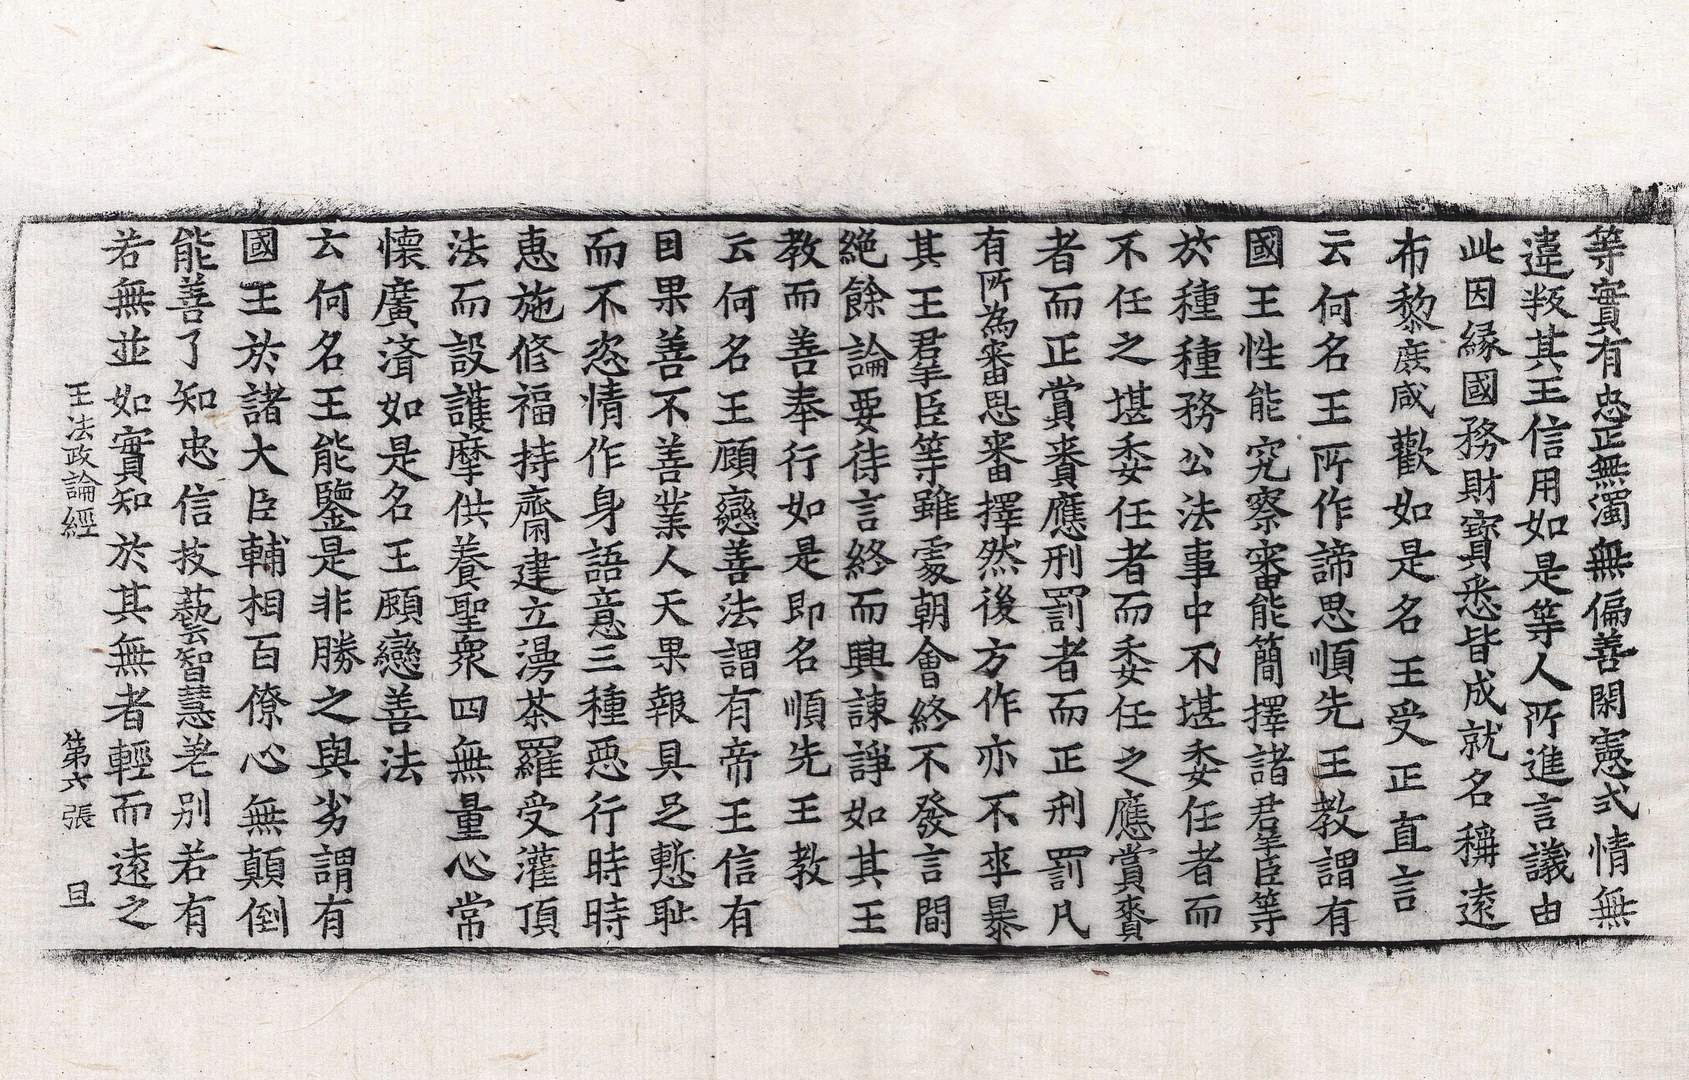 等實有忠正無濁無偏善閑憲式情無
違叛其王信用如是等人所進言議由
此因縁國務財寶悉皆成就名稱遠
布黎庶咸歡如是名王受正直言
云何名王所作諦思順先王教謂有
國王性能究察審能簡擇諸群臣等
於種種務公法事中不堪委任者而
不任之堪委任者而委任之應賞賚
者而正賞賚應刑罰者而正刑罰凡
有所為審思審擇然後方作亦不卒暴
其王群臣等雖處朝會終不發言間
絕餘論要待言終而興諫諍如其王
教而善奉行如是即名順先王教
云何名王顧戀善法謂有帝王信有
因果善不善業人天果報具足慙恥
而不恣情作身語意三種惡行時時
惠施修福持齋建立漫荼羅受灌頂
法而設護摩供養聖衆四無量心常
懷廣濟如是名王顧戀善法
云何名王能鑒是非勝之與劣謂有
國王於諸大臣輔相百僚心無顛倒
能善了知忠信技藝智慧差别若有
若無並如實知於其無者輕而遠之
王法政論經　第六張　旦